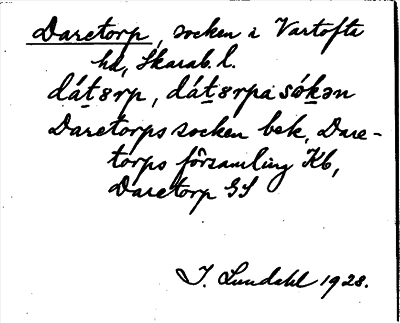 Daretorp, socken i Vartofta
hd, Skarab. l.
dát8rp, dát8rpa sókən
Daretorps socken bek, Dare-
torps församling Kb,
Daretorp GS
I. Lundahl 1928.